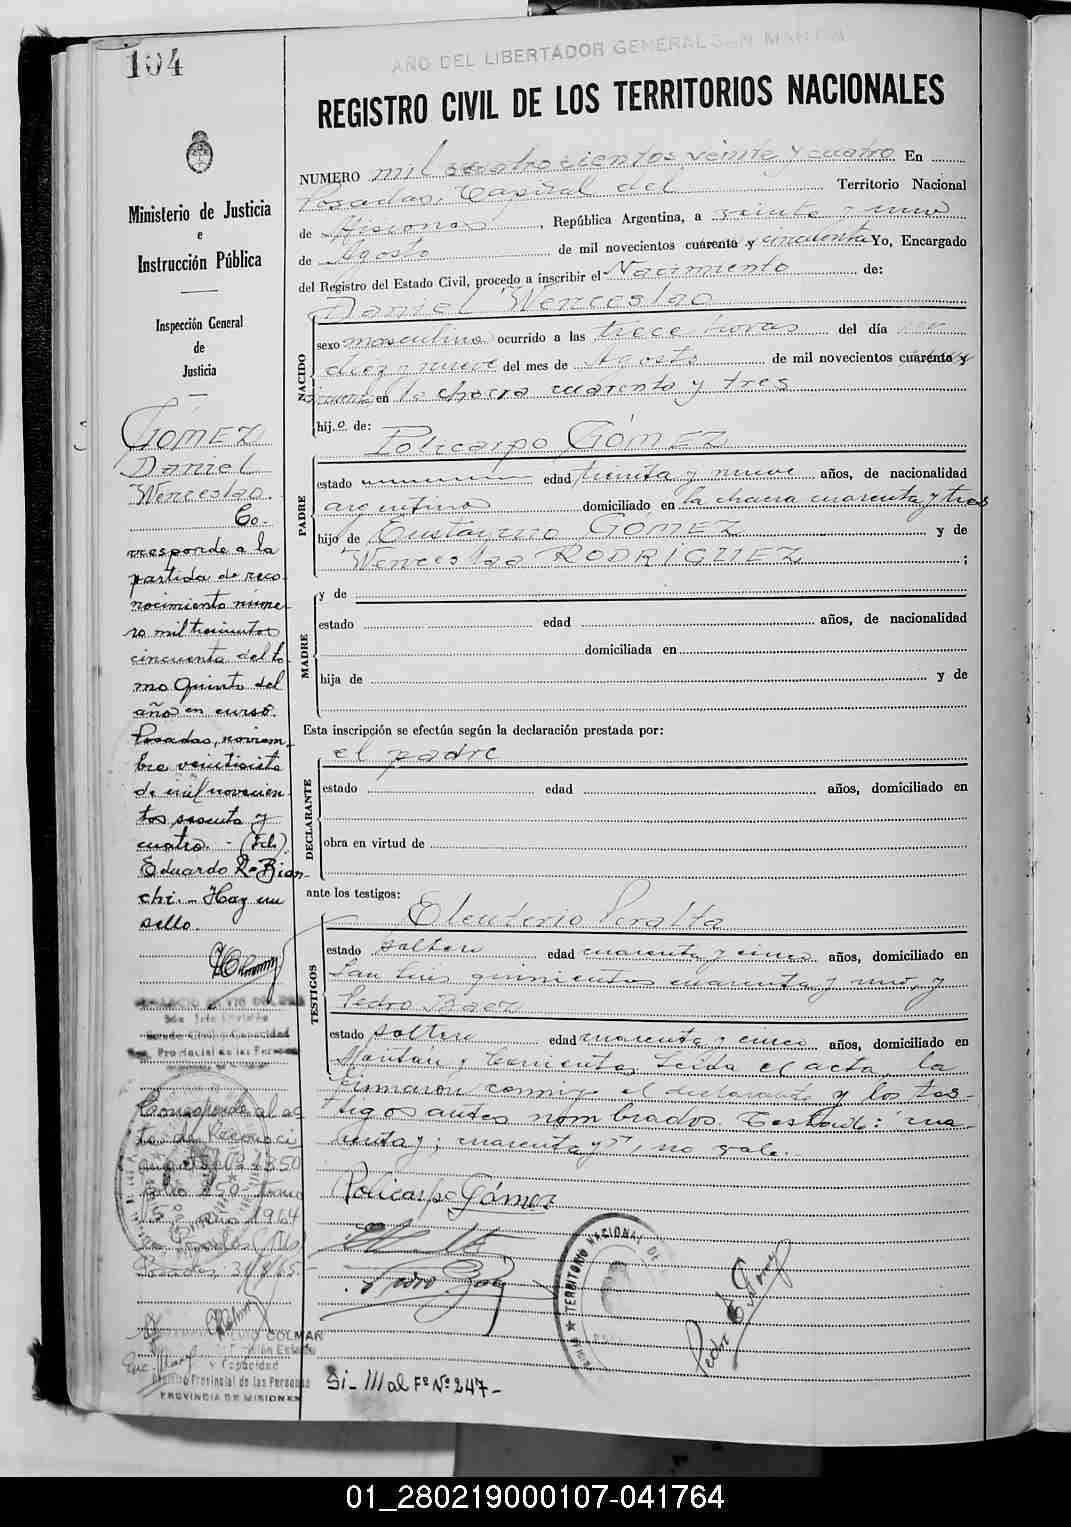 104
AÑO DEL LIBERTADOR GENERAL SAN MARTIN
REGISTRO CIVIL DE LOS TERRITORIOS NACIONALES
Ministerio de Justicia
e
Instrucción Pública
Inspección General
de
Justicia
GÓMEZ
Daniel
Wenceslao.
Co-
rresponde a la
partida de reco-
nocimiento núme-
ro mil trescientos
cincuenta del to-
mo Quinto del
año en curso.
Posadas, noviem-
bre veintisiete
de mil novecien-
tos sesenta y
cuatro. - (Fdo).
Eduardo R. Bian-
chi. - Hay un
sello.
Corresponde al ac
to de Reconoci
miento Nº 1350
folio 150 Tomo
año 1964
Posadas (Ms)
Posadas, 31/8/65.-
COLMAN
y Capacidad
Registro Provincial de las Personas
PROVINCIA DE MISIONES
NUMERO mil cuatrocientos veinte y cuatro En
Posadas, Capital del Territorio Nacional
de Misiones, República Argentina, a veinte y uno
de Agosto de mil novecientos cuarenta y cincuenta Yo, Encargado
del Registro del Estado Civil, procedo a inscribir el Nacimiento de:
Daniel Wenceslao
NACIDO
sexo masculino ocurrido a las trece horas del día
diez y nueve del mes de Agosto de mil novecientos cuarenta y
cincuenta en la chacra cuarenta y tres
hijo de:
Policarpo GÓMEZ
PADRE
estado edad treinta y nueve años, de nacionalidad
argentino domiciliado en la chacra cuarenta y tres
hijo de GOMEZ y de
Wenceslao RODRIGUEZ ;
MADRE
y de
estado edad años, de nacionalidad
domiciliada en
hija de y de
Esta inscripción se efectúa según la declaración prestada por:
el padre
DECLARANTE
estado edad años, domiciliado en
obra en virtud de
ante los testigos:
Eleuterio Peralta
TESTIGOS
estado soltero edad cuarenta y cinco años, domiciliado en
San Luis quinientos cuarenta y uno, y
Pedro Báez
estado soltero edad cuarenta y cinco años, domiciliado en
Maitán y Corrientes. Leída el acta, la
firmaron conmigo el declarante y los tes-
tigos antes nombrados. Testado: "cua-
renta y; cuarenta y", no vale.-
Policarpo Gómez
Pedro Báez
TERRITORIO NACIONAL DE
Si_ III al Fº Nº 247-
01_280219000107-041764